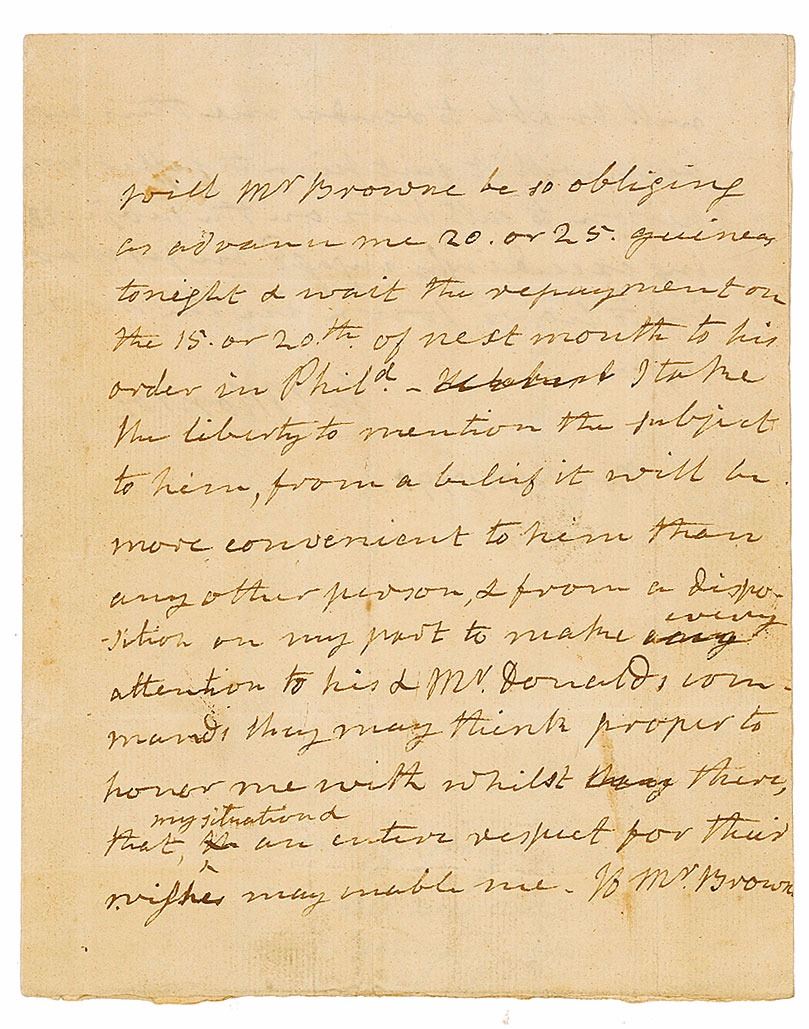 Will Mr Browne be so obliging
as advance me 20. or 25. guineas
tonight & wait the repayment on
the 15. or 20.th of next month to his
order in Phild. - I take
the liberty to mention the subject
to him, from a belief it will be
more convenient to him than
any other person, & from a dispo-
-sition on my part to make every
attention to his & Mr. Donalds com-
mands they may think proper to
honor me with whilst there,
that, my situation & an entire respect for their
wishes may enable me. If Mr. Brown